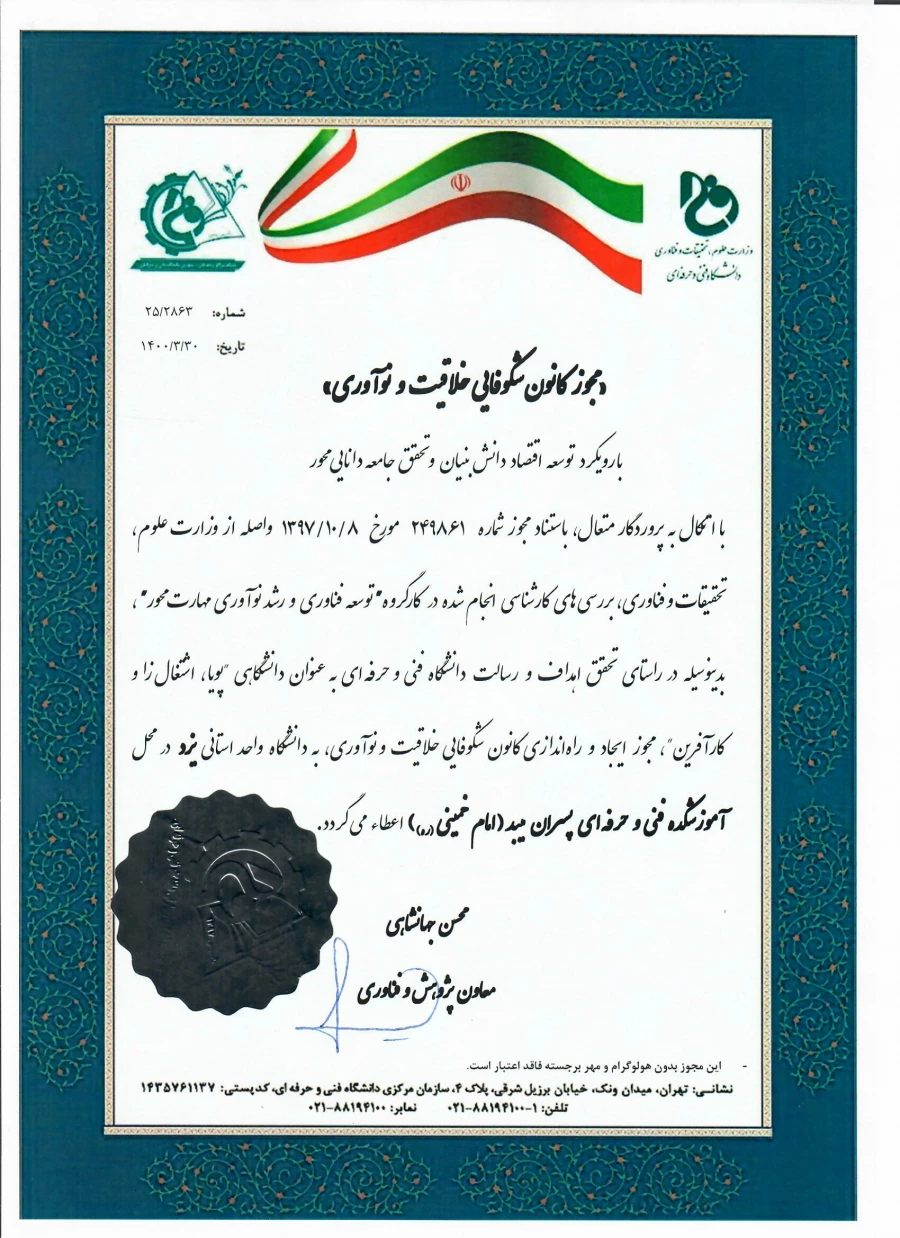 وزارت علوم، تحقیقات و فناوری
دانشگاه فنی و حرفه‌ای
شماره: ۲۵/۲۸۶۳
تاریخ: ۱۴۰۰/۳/۳۰
«مجوز کانون شکوفایی خلاقیت و نوآوری»
با رویکرد توسعه اقتصاد دانش بنیان و تحقق جامعه دانایی محور
با اتکال به پروردگار متعال، باستناد مجوز شماره ۲۴۹۸۶۱ مورخ ۱۳۹۷/۱۰/۸ واصله از وزارت علوم،
تحقیقات و فناوری، بررسی های کارشناسی انجام شده در کارگروه "توسعه فناوری و رشد نوآوری مهارت محور"،
بدینوسیله در راستای تحقق اهداف و رسالت دانشگاه فنی و حرفه ای به عنوان دانشگاهی "پویا، اشتغال زا و
کارآفرین"، مجوز ایجاد و راه‌اندازی کانون شکوفایی خلاقیت و نوآوری، به دانشگاه واحد استانی یزد در محل
آموزشکده فنی و حرفه ای پسران میبد (امام خمینی (ره)) اعطاء می گردد.
محسن جهانشاهی
معاون پژوهش و فناوری
- این مجوز بدون هولوگرام و مهر برجسته فاقد اعتبار است.
نشانی: تهران، میدان ونک، خیابان برزیل شرقی، پلاک ۴، سازمان مرکزی دانشگاه فنی و حرفه ای، کدپستی: ۱۴۳۵۷۶۱۱۳۷
تلفن: ۱-۸۸۱۹۴۱۰۰-۰۲۱ نمابر: ۸۸۱۹۴۱۰۰-۰۲۱